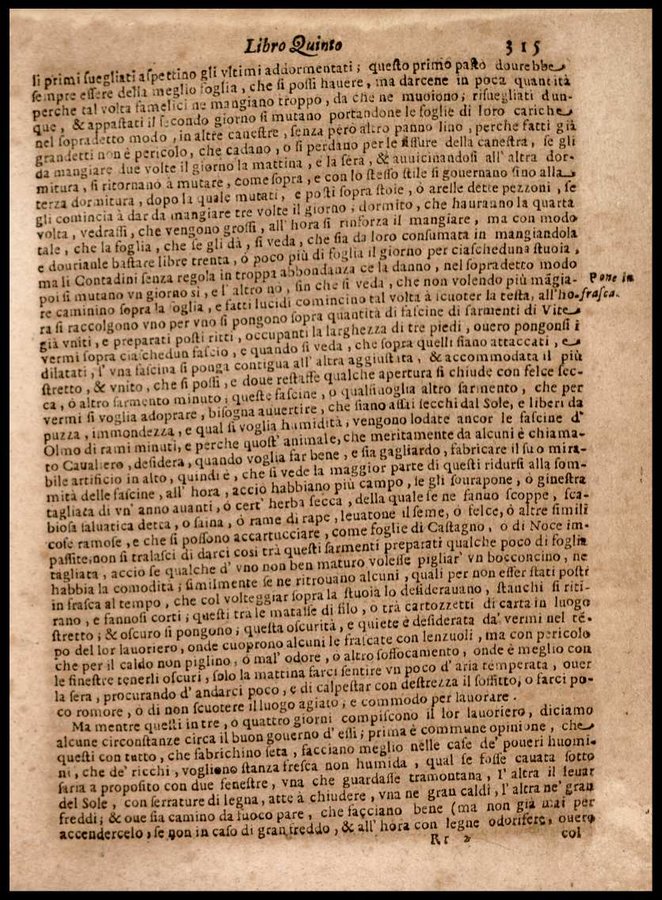 Libro Quinto 315
li primi suegliati aspettino gli vltimi addormentati; questo primo pasto dourebbe
sempre essere della meglio foglia, che si possi hauere, ma darcene in poca quantità
perche tal volta famelici ne mangiano troppo, da che ne muoiono; risuegliati dun-
que, & appastati il secondo giorno si mutano portandone le foglie di loro cariche
nel sopradetto modo, in altre canestre, senza però altro panno lino, perche fatti già
grandetti non è pericolo, che cadano, o si perdano per le fissure della canestra, se gli
da mangiare due volte il giorno la mattina, e la sera, & auuicinandosi all' altra dor-
mitura, si ritornano à mutare, come sopra, e con lo stesso stile si gouernano sino alla
terza dormitura, dopo la quale mutati, e posti sopra stoie, ò arelle dette pezzoni, se
gli comincia à dar da mangiare tre volte il giorno; dormito, che haurauno la quarta
volta, vedrassi, che vengono grossi, all' hora si rinforza il mangiare, ma con modo
tale, che la foglia, che se gli dà, si veda, che sia da loro consumata in mangiandola
e douriaule bastare libre trenta, ò poco più di foglia il giorno per ciascheduna stuoia,
ma li Contadini senza regola in troppa abbondanza ce la danno, nel sopradetto modo
poi si mutano vn giorno sì, e l' altro no, sin che si veda, che non volendo più mãgia-
re caminino sopra la foglia, e fatti lucidi comincino tal volta à scuoter la testa, all'ho-
Pone in
frasca.
ra si raccolgono vno per vno si pongono sopra quantità di fascine di sarmenti di Vite
già vniti, e preparati posti ritti, occupanti la larghezza di tre piedi, ouero pongonsi i
vermi sopra ciaschedun fascio, e quando si veda, che sopra quelli siano attaccati, e
dilatati, l' vna fascina si ponga contigua all' altra aggiustita, & accommodata il più
stretto, & vnito, che si possi, e doue restasse qualche apertura si chiude con felce sec-
ca, ò altro sarmento minuto; queste fascine, o qualsiuoglia altro sarmento, che per
vermi si voglia adoprare, bisogna auuertire, che siano assai secchi dal Sole, e liberi da
puzza, immondezza, e qual si voglia humidità, vengono lodate ancor le fascine d'
Olmo di rami minuti, e perche quost' animale, che meritamente da alcuni è chiama-
to Caualiero, desidera, quando voglia far bene, e sia gagliardo, fabricare il suo mira-
bile artificio in alto, quindi è, che si vede la maggior parte di questi ridursi alla som-
mità delle fascine, all' hora, acciò habbiano più campo, se gli sourapone, ò ginestra
tagliata di vn' anno auanti, ò cert' herba secca, della quale se ne fanno scoppe, sca-
biosa saluatica detta, o saina, ò rame di rape, leuatone il seme, ò felce, ò altre simili
cose ramose, e che si possono accartucciare, come foglie di Castagno, o di Noce im-
passite; non si tralasci di darci così trà questi sarmenti preparati qualche poco di foglia
tagliata, acciò se qualche d' vno non ben maturo volesse pigliar' vn bocconcino, ne
habbia la comodità; similmente se ne ritrouano alcuni, quali per non esser stati posti
in frasca al tempo, che col volteggiar sopra la stuoia lo desiderauano, stanchi si riti-
rano, e fannosi corti; questi tra le matasse di filo, o trà cartozzetti di carta in luogo
stretto; & oscuro si pongono; questa oscurità, e quiete è desiderata da' vermi nel tẽ-
po del lor lauoriero, onde cuoprono alcuni le frascate con lenzuoli, ma con pericolo
che per il caldo non piglino, ò mal' odore, ò altro soffocamento, onde è meglio con
le finestre tenerli oscuri, solo la mattina farci sentire vn poco d' aria temperata, ouer
la sera, procurando d' andarci poco, e di calpestar con destrezza il soffitto, o farci po-
co romore, ò di non scuotere il luogo agiato; e commodo per lauorare.
Ma mentre questi in tre, o quattro giorni compiscono il lor lauoriero, diciamo
alcune circonstanze circa il buon gouerno d' essi; prima è commune opinione, che
questi con tutto, che fabrichino seta, facciano meglio nelle case de' poueri huomi-
ni, che de' ricchi, vogliono stanza fresca non humida, qual se fosse cauata sotto
saria a proposito con due fenestre, vna che guardasse tramontana, l' altra il leuar
del Sole, con serrature di legna, atte à chiudere, vna ne gran caldi, l' altra ne' gran
freddi; & oue sia camino da fuoco pare, che facciano bene (ma non già mai per
accendercelo, se non in caso di gran freddo, & all' hora con legne odorifere, ouero
Rr 2 col